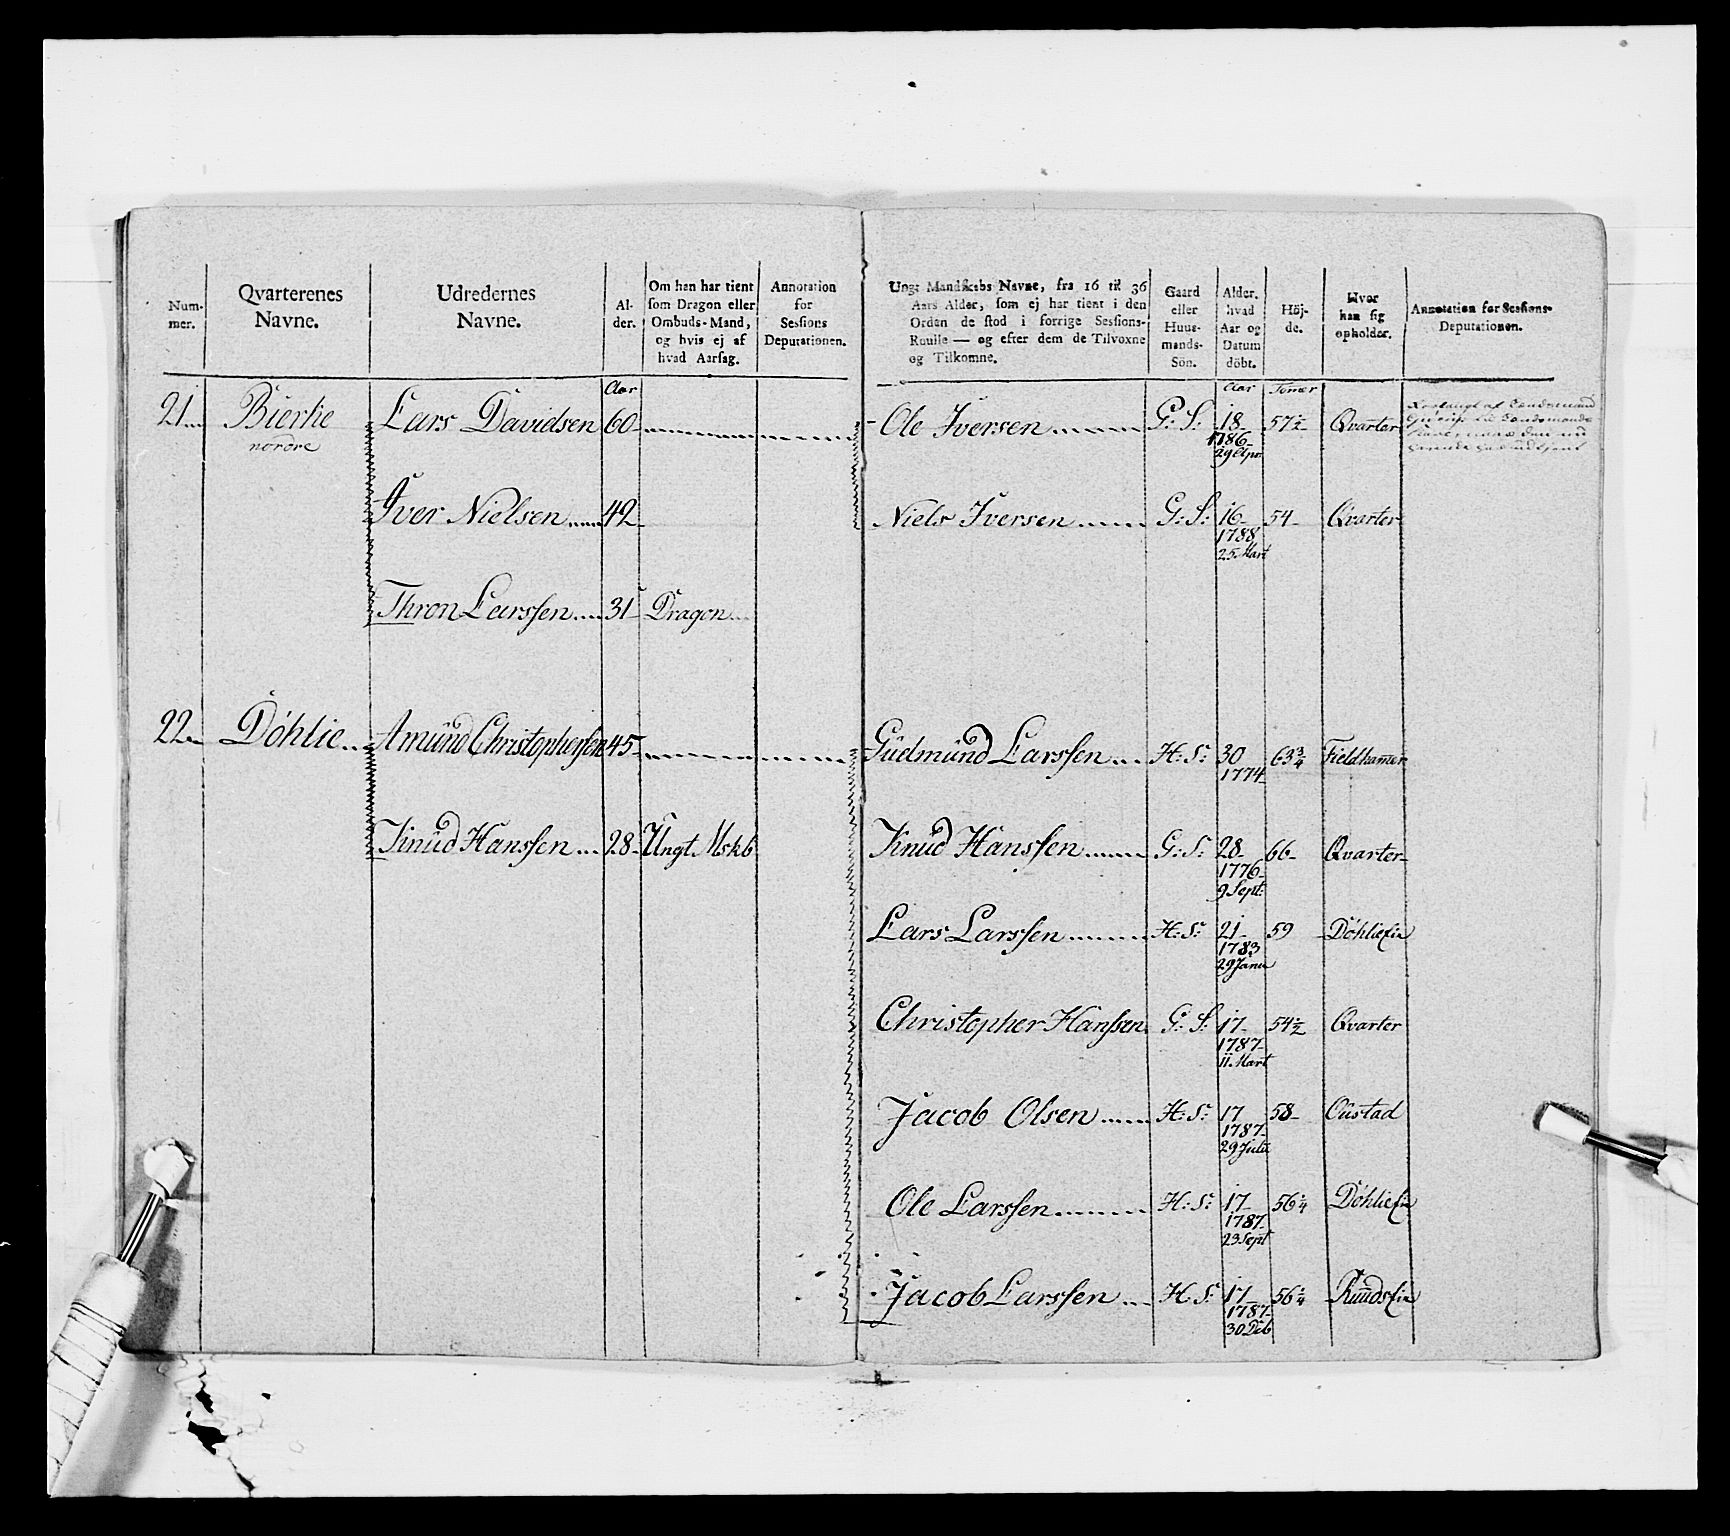 Num-
mer.
Qvarterenes
Navne.
Udredernes
Navne.
Al-
der.
Om han har tient
som Dragon eller
Ombuds-Mand,
og hvis ej af
hvad Aarsag.
Annotation
for
Sessions
Deputationen.
Ungt Mandskabs Navne, fra 16 til 36
Aars Alder, som ej har tient i den
Orden de stod i forrige Sessions-
Roulle — og efter dem de Tilvoxne
og Tilkomne.
Gaard
eller
Huus-
mands-
Sön.
Alder.
hvad
Aar og
Datum
döbt.
Höj-
de.
Hvor
han sig
opholder.
Annotation for Sessions-
Deputationen.
Aar
Aar Tomer
21 Bierke Lars Davidsen 60
nordre
Ole Iversen G: S: 18 57½ Qvarter
1786
29 Apr
Iver Nielsen 42
Niels Iversen G: S: 16 54 Qvarter
1788
25 Mart
Thron Larssen 31 Dragon
22 Döhlie Amund Christophersen 45
Gudmund Larssen H: S: 30 63¾ Fieldhammer
1774
Knud Hanssen 28 Ungt Mskb
Knud Hanssen G: S: 28 66 Qvarter
1776
9 Sept:
Lars Larssen H: S: 21 59 Döhlie
1783
29 Janu
Christopher Hanssen G: S: 17 54½ Qvarter
1787
11 Mart
Jacob Olsen H: S: 17 58 Oustad
1787
29 Julii
Ole Larssen H: S: 17 56¼ Döhlie
1787
23 Sept
Jacob Larssen H. S: 17 56¼
1787
30 Deb